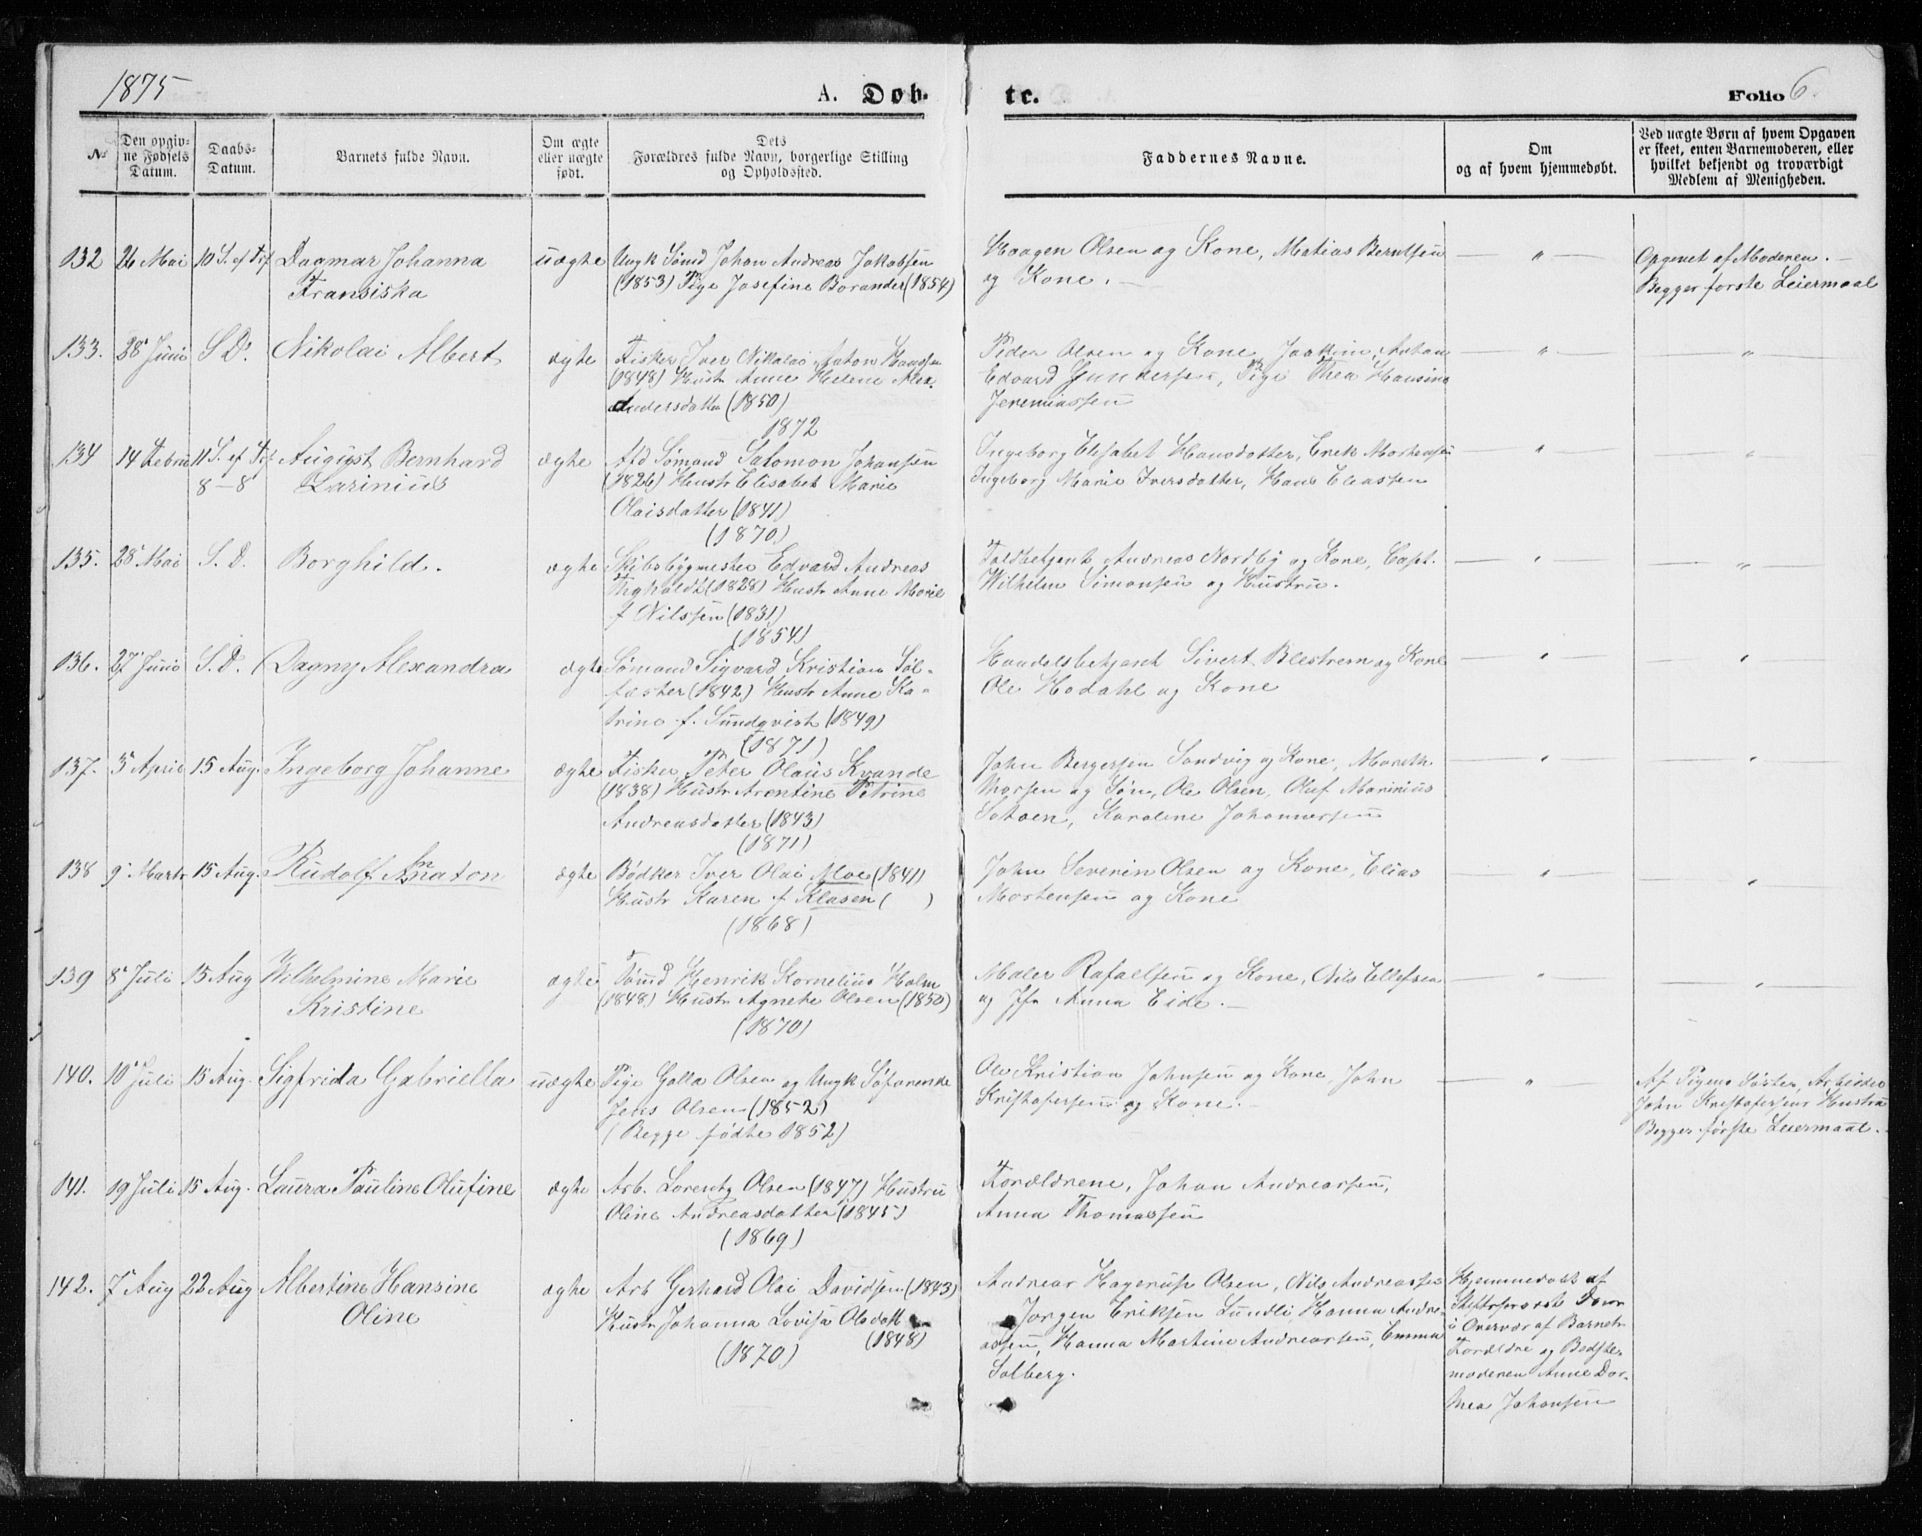 1875
A. Døb-
te.
Folio 6.
No
Den opgiv-
ne Fødsels
Datum.
Daabs-
Datum.
Barnets fulde Navn.
Om ægte
eller uægte
født.
Dets
Forældres fulde Navn, borgerlige Stilling
og Opholdssted.
Faddernes Navne.
Om
og af hvem hjemmedøbt.
Ved uægte Børn af hvem Opgaven
er skeet, enten Barnemoderen, eller
hvilket bekjendt og troværdigt
Medlem af Menigheden.
132 26 Mai 10 S. ef Trf Dagmar Johanna
Fransiska
uægte
Ungk Sømd Johan Andreas Jakobsen
(1853) Pige Josefine Borander (1854)
Haagen Olsen og Kone, Matias Berntsen
og Kone. —
"
Opgivet af Moderen. —
Begges første Leiermaal
133. 28 Juni S. D. Nikolai Albert
ægte
Fisker Iver Nikolai Anton Hansen
(1848) Hustr Anne Helene Alex-
andersdatter (1850)
1872
Peder Olsen og Kone, Joakim Anton
Edvard Gundersen, Pige Thea Hansine
Jeremiassen
"
"
134 14 Febru 11 S. ef Trf August Bernhard
8 – 8 Larinius
ægte
Afd Sømand Salomon Johansen
(1826) Hustr Elisabet Marie
Olaisdatter (1841)
(1870)
Ingeborg Elisabet Hansdatter, Erik Mortensen
Ingeborg Marie Iversdatter, Hans Eliassen
"
"
135. 28 Mai S. D. Borghild.
ægte
Skibsbygmester Edvard Andreas
(1828) Hustr Anne Marie
f Nilssen (1831)
(1854)
Toldbetjent Andreas Nordby og Kone, Capt.
Wilhelm Simonsen og Hustru.
"
"
136. 27 Juni S. D. Dagny Alexandra
ægte
Sømand Sigvard Kristian Søl-
fæster (1842) Hustr Anne Ka-
trine f. Sundqvist (1849)
(1871)
Handelsbetjent Sivert Blestrem og Kone
Ole Hodahl og Kone
"
"
137. 3 April 15 Aug. Ingeborg Johanne
ægte
Fisker Peter Olaus Kvande
(1838) Hustr Arentine Petrine
Andreasdatter (1843)
(1871)
John Bergersen Sandvig og Kone,
og Søn, Ole Olsen, Oluf Marinius
Karoline Johannessen
"
"
138 9 Marts 15 Aug. Rudolf Annaton
ægte
Bødker Iver Olai Aloe (1841)
Hustr Karen f Klasen ( )
(1868)
John Severin Olsen og Kone, Elias
Mortensen og Kone
"
"
139 8 Juli 15 Aug Wilhelmine Marie
Kristine
ægte
Tømd Henrik Kornelius Holm
(1848) Hustr Agnete Olsen (1850)
(1870)
Maler Rafaelsen og Kone, Nils Ellefsen
og Jfr Anna Eide. —
"
"
140. 10 Juli 15 Aug. Sigfrida Gabriella
uægte
Pige Golla Olsen og Ungk Søfarende
Jens Olsen (1852)
(Begge fødte 1852)
Ole Kristian Johnsen og Kone, John
Kristofersen og Kone. —
"
Af Pigens Søster, Arbeider
John Kristofersens Hustru
Begges første Leiermaal.
141. 19 Juli 15 Aug. Laura Pauline Olufine
ægte
Arb. Lorentz Olsen (1847) Hustru
Oline Andreasdatter (1845)
(1869)
Forældrene, Johan Andreassen,
Anna Thomassen
142. 7 Aug 22 Aug Albertine Hansine
Oline
ægte
Arb Gerhard Olai Davidsen (1843)
Hustr Johanna Lovisa Olsdatt
(1848)
(1870)
Andreas Hagerup Olsen, Nils Andreassen
Jørgen Eriksen Lundli, Hanna Andre-
assen, Hanna Martine Andreassen, Emma
Solberg.
Hjemmedøbt af
Stiftsprovst Darr
i Overvær af Barnets
Forældre og Bedste-
moderen Anne Dor-
thea Johansen